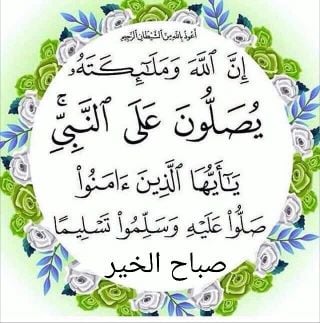 أعوذ بالله من الشيطان الرجيم
إِنَّ ٱللَّهَ وَمَلَٰٓئِكَتَهُۥ
يُصَلُّونَ عَلَى ٱلنَّبِيِّۚ
يَٰٓأَيُّهَا ٱلَّذِينَ ءَامَنُوا۟
صَلُّوا۟ عَلَيْهِ وَسَلِّمُوا۟ تَسْلِيمًا
صباح الخير